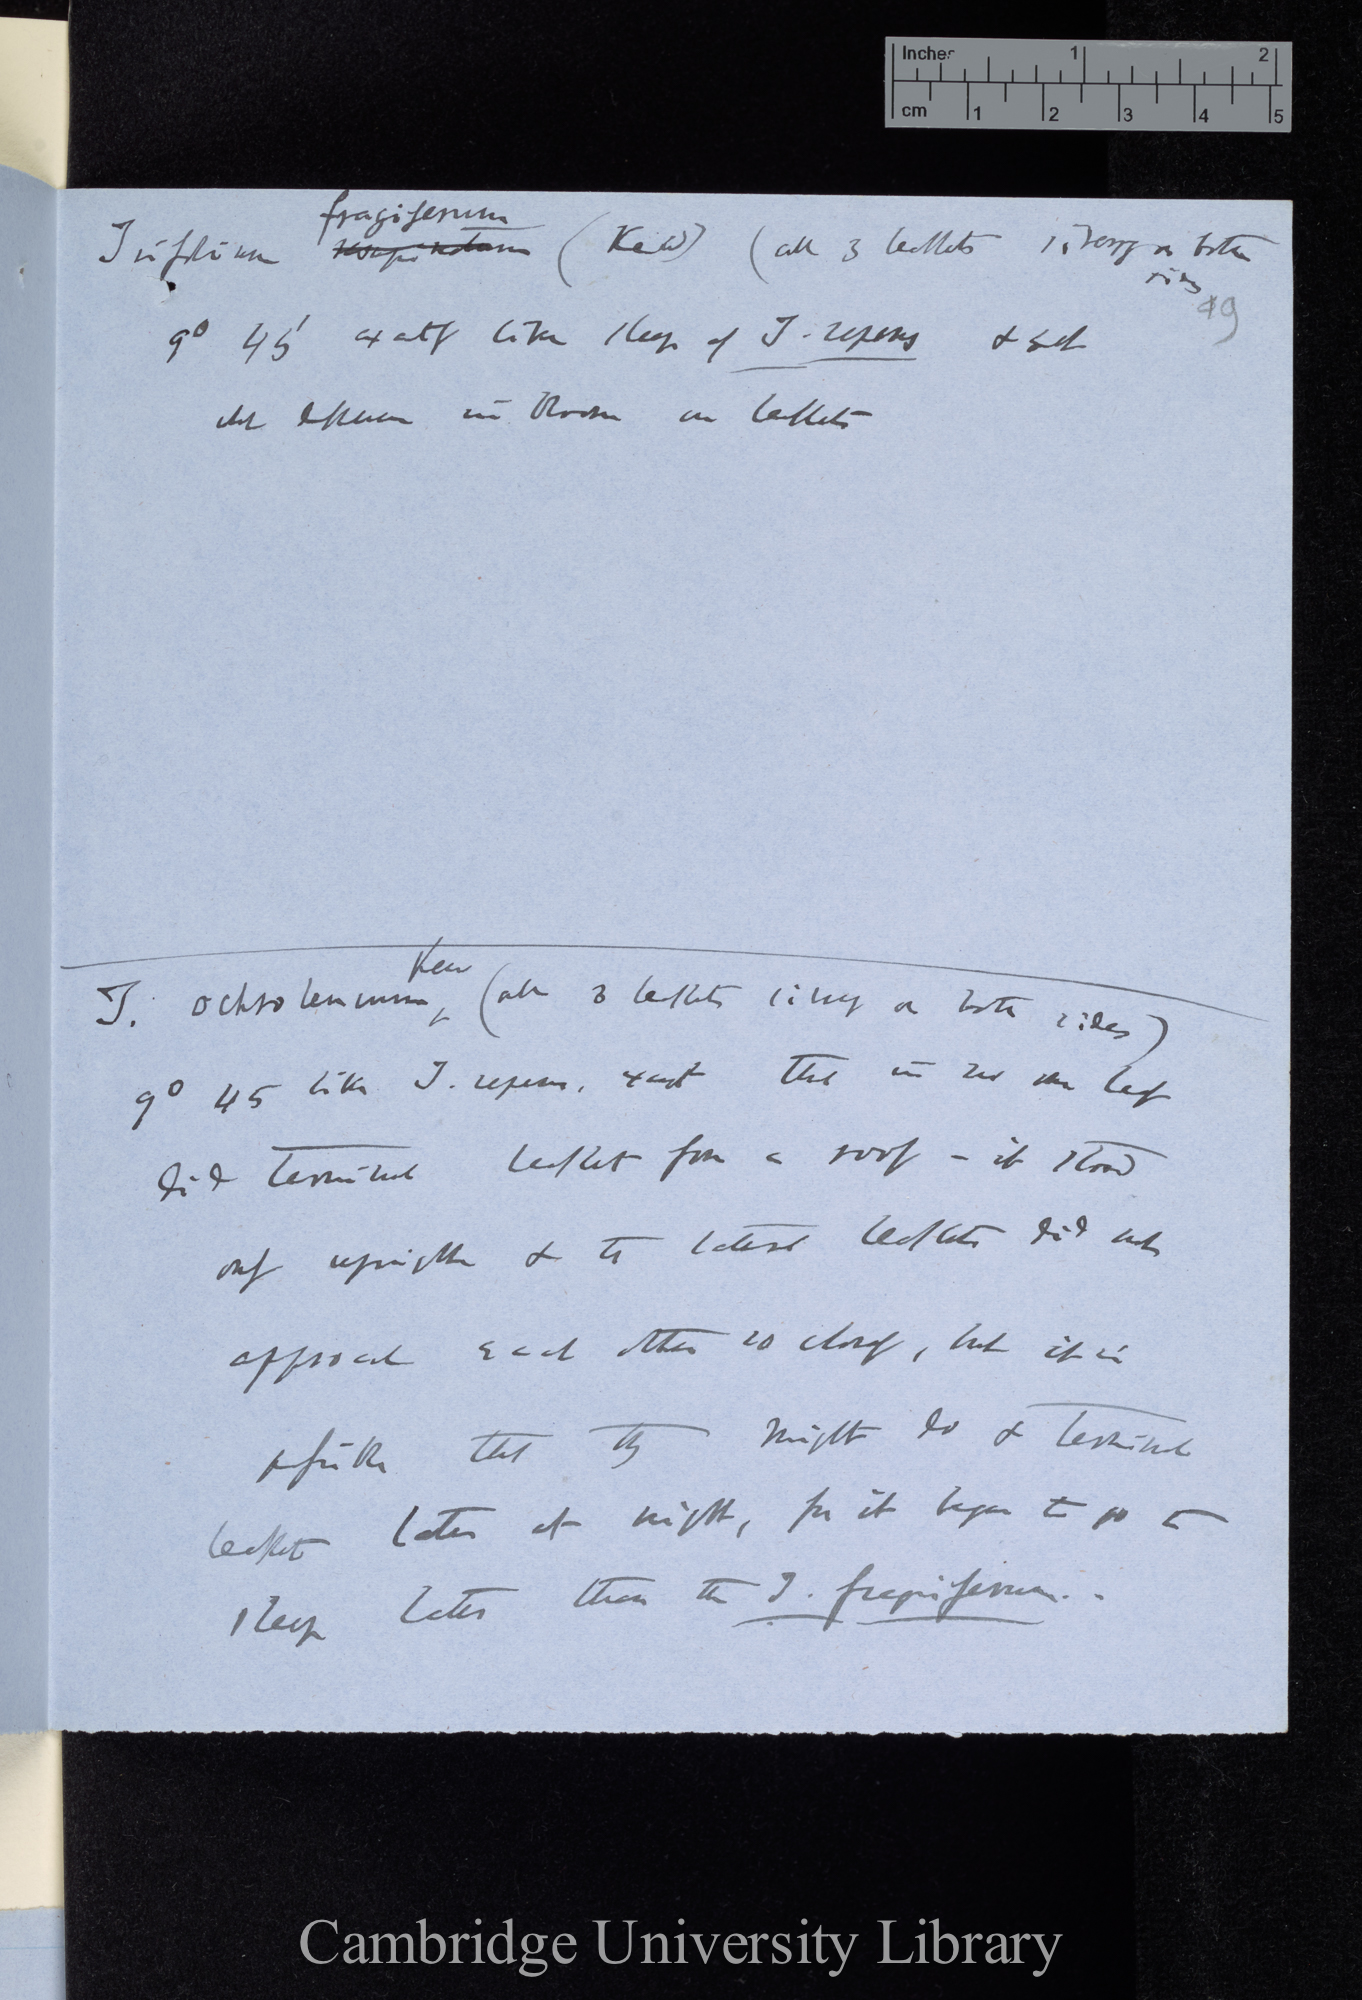 Inches 1 2
cm 1 2 3 4 5
fragiferum
Trifolium (Kew) (all 3 leaflets silvery on both
sides
49
9° 45' exactly like sleep of T. repens & 
in Room on leaflets
Kew
T. ochroleucum, (all 3 leaflets silvery on both sides)
9° 45 like T. repens, except that in no one leaf
did terminal leaflet form a roof – it stood
only upright & the lateral leaflets did not
approach each other so closely, but it is
possible that they might do & terminal
leaflet later at night, for it began to go to
sleep later than the T. fragiferum. –
Cambridge University Library